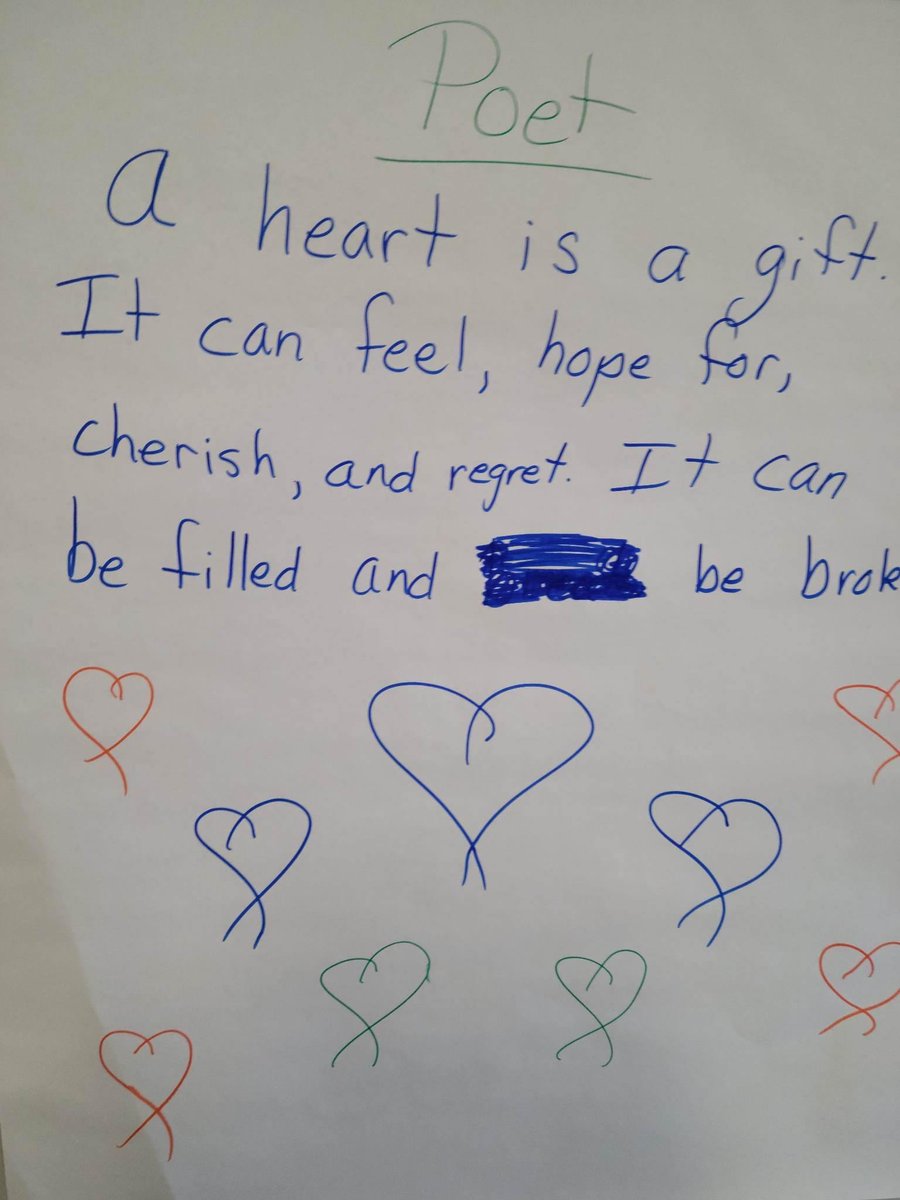 Poet
A heart is a gift.
It can feel, hope for,
cherish, and regret. It can
be filled and be brok